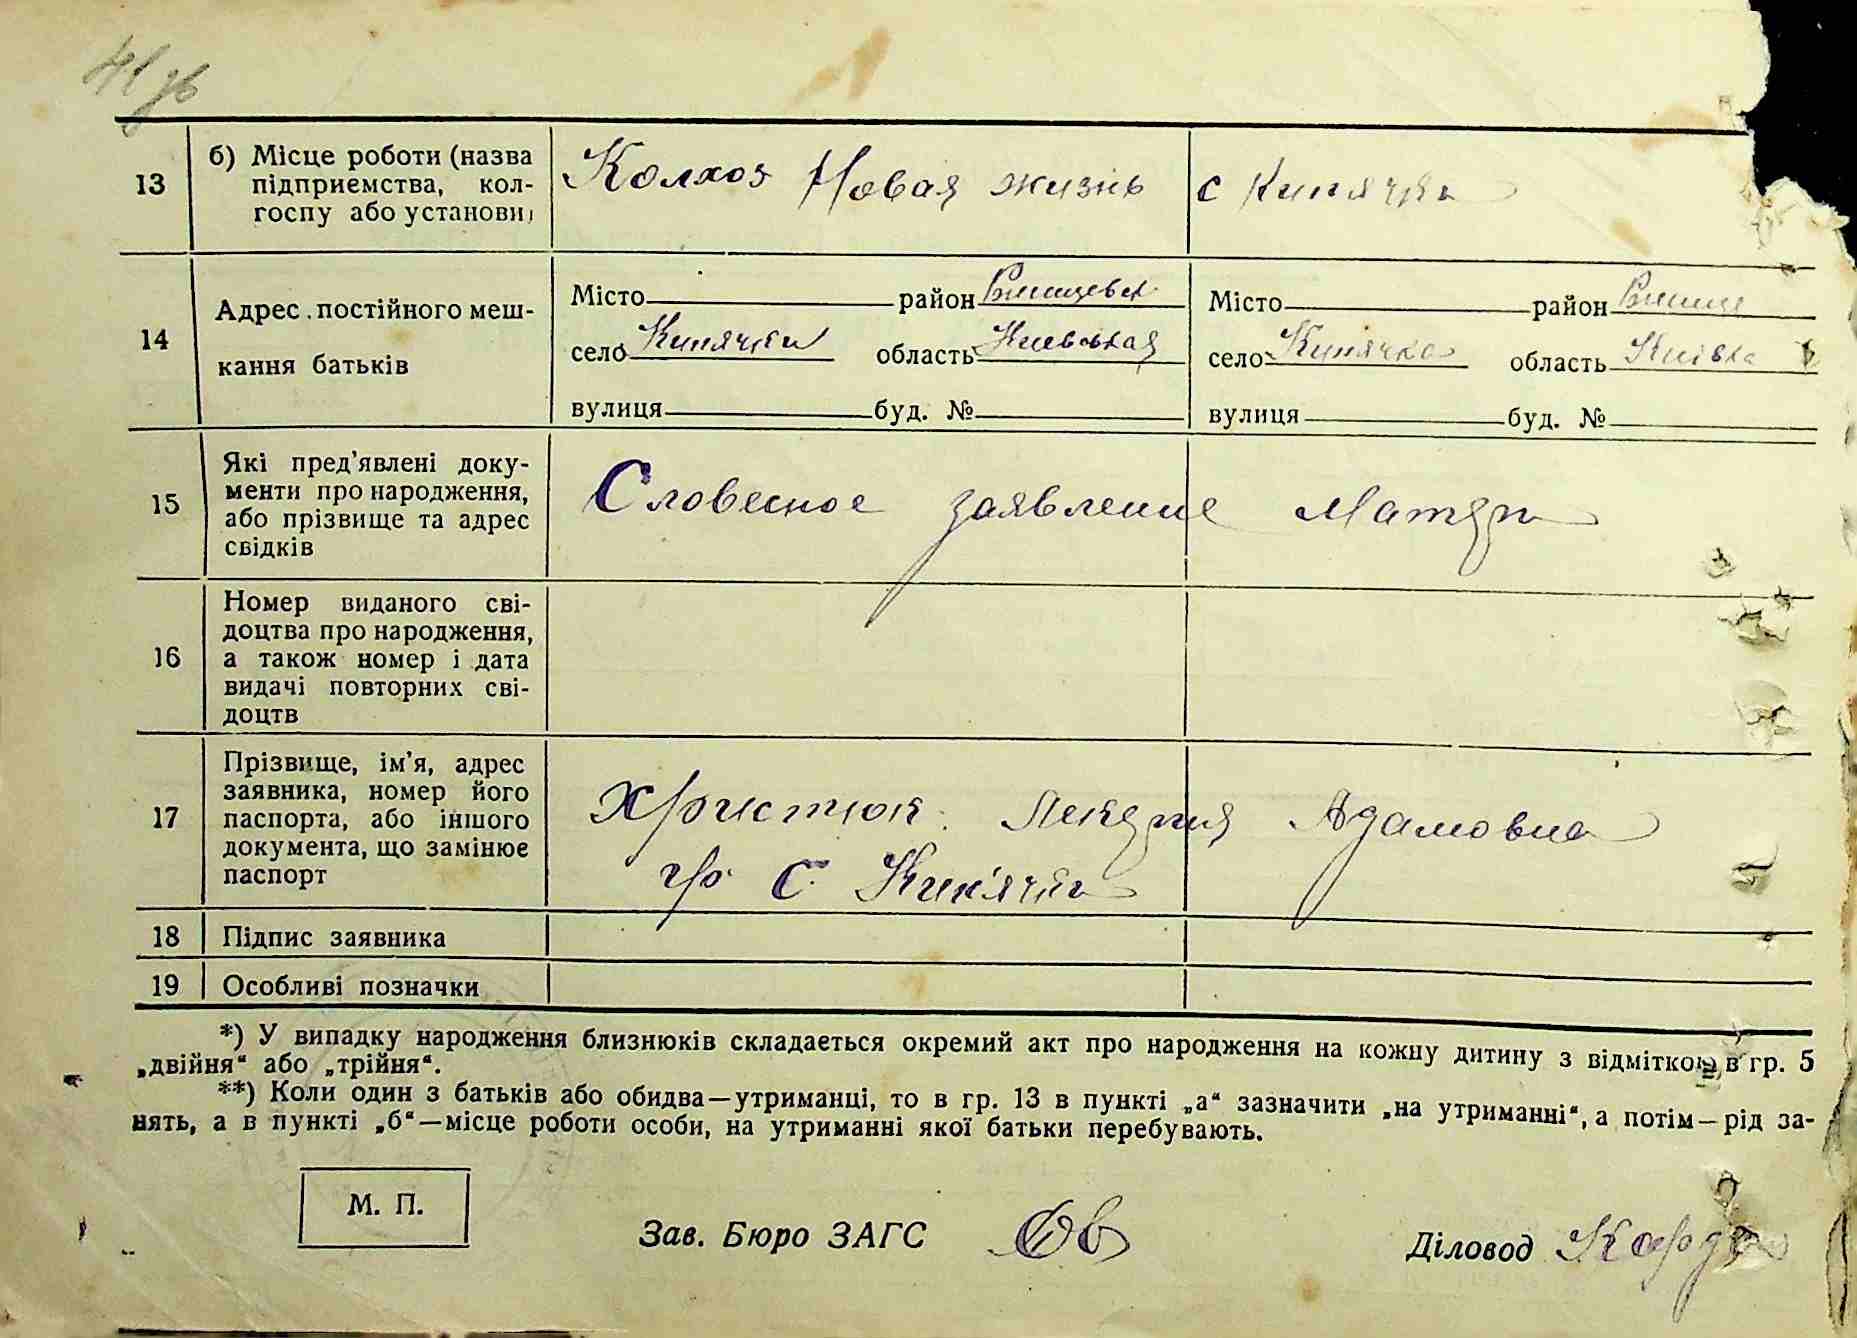 13
б) Місце роботи (назва
підприємства, кол-
госпу або установи)
Колхоз Новая жизнь
с Кипячка
14
Адрес постійного меш-
кання батьків
Місто район
село Кипячки область Киевская
вулиця буд. №
Місто район
село Кипячка область
вулиця буд. №
15
Які пред'явлені доку-
менти про народження,
або прізвище та адрес
свідків
Словесное заявление Матери
16
Номер виданого сві-
доцтва про народження,
а також номер і дата
видачі повторних сві-
доцтв
17
Прізвище, ім'я, адрес
заявника, номер його
паспорта, або іншого
документа, що замінює
паспорт
Христюк Ликерия Адамовна
гр. С. Кипячка
18
Підпис заявника
19
Особливі позначки
*) У випадку народження близнюків складається окремий акт про народження на кожну дитину з відміткою в гр. 5
„двійня“ або „трійня“.
**) Коли один з батьків або обидва—утриманці, то в гр. 13 в пункті „а“ зазначити „на утриманні“, а потім—рід за-
нять, а в пункті „б“—місце роботи особи, на утриманні якої батьки перебувають.
М. П.
Зав. Бюро ЗАГС
Діловод